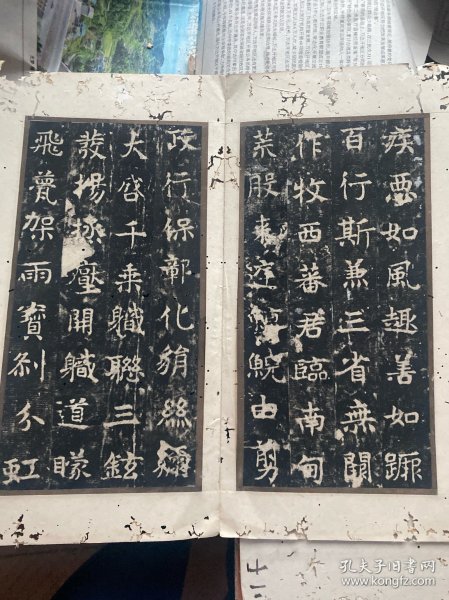 疾惡如風趣善如
百行斯兼三省無闕
作牧西蕃君臨南甸
荒服来鯢由剪
政行保鄣化絹絲
大啓千乘職聯三鉉
裁楊拯壓開職道
飛甍架雨寶刹分虹
孔夫子旧书网
www.kongfz.com